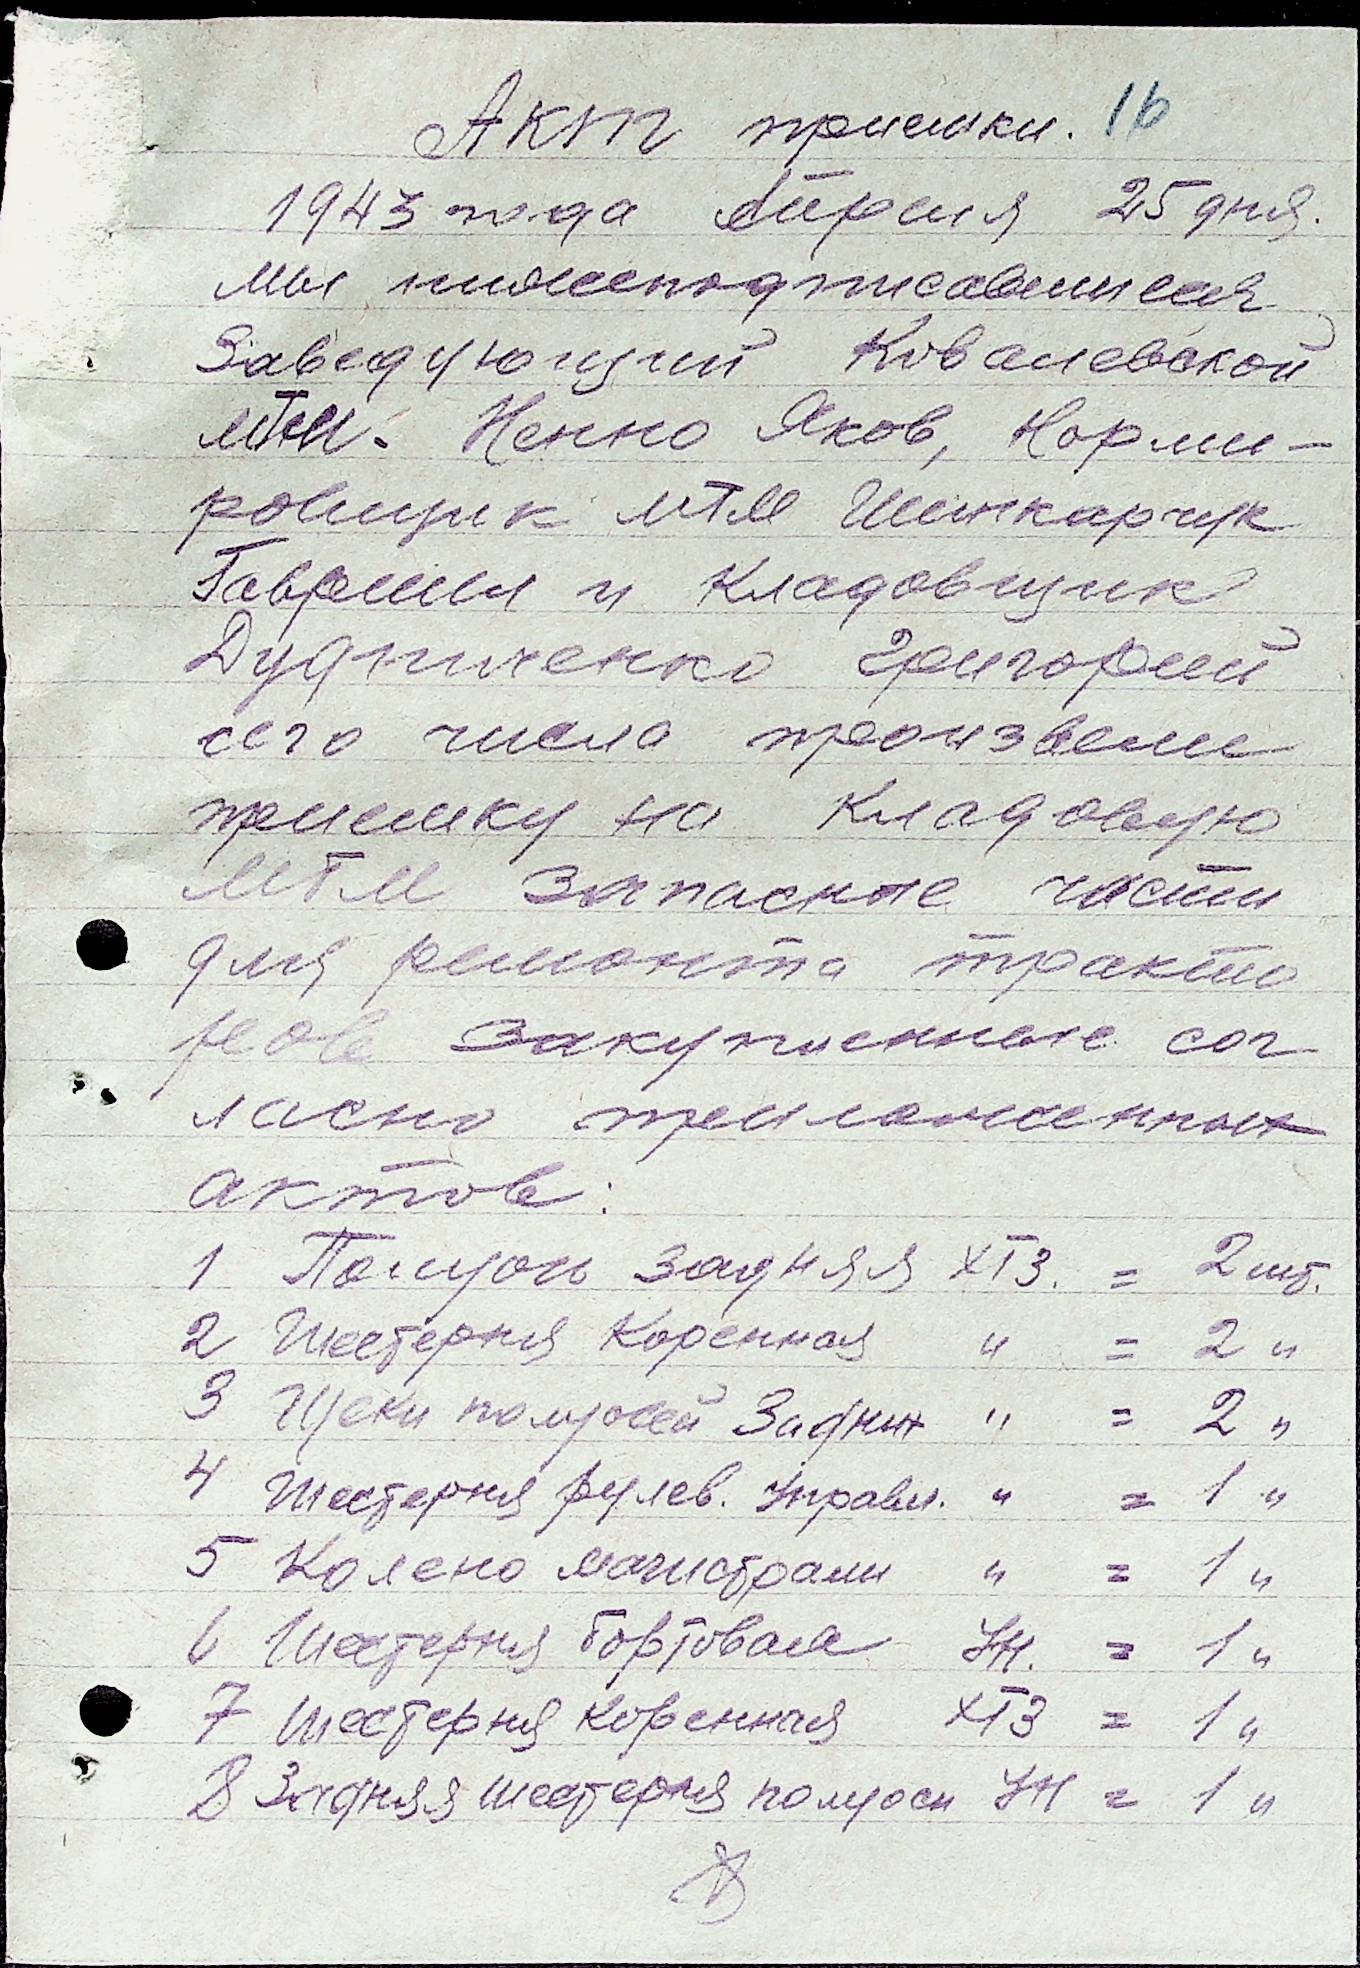 Акт приемки. 16
1943 года Апреля 25 дня.
мы нижеподписавшиеся
Заведующий Ковалевской
МТМ. Ненно Яков, Норми-
ровщик МТМ Шинкарчук
Гавриил и Кладовщик
Дудниченко Григорий
сего числа произвели
приемку на Кладовую
МТМ запасные части
для ремонта тракто
ров закупленные сог
ласно приложенных
актов:
1 Полуось задняя ХТЗ. = 2 шт.
2 Шестерня Коренная " = 2 "
3 Щеки полуосей Задних " = 2 "
4 Шестерня рулев. Управл. " = 1 "
5 Колено магистрали " = 1 "
6 Шестерня бортовая УН. = 1 "
7 Шестерня коренная ХТЗ = 1 "
8 Задняя шестерня полуоси УН = 1 "